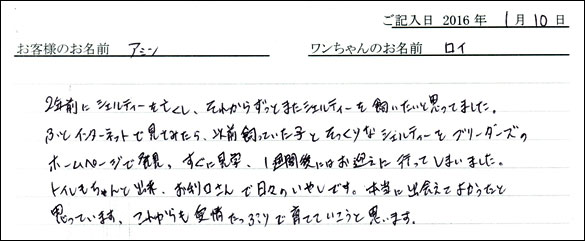 ご記入日 2016 年 1月 10日
お客様のお名前 アミン ワンちゃんのお名前 ロイ
2年前に シェルティーを亡くし、それからずっとまたシェルティーを飼いたいと思ってました。
ふと インターネットで見てみたら、以前飼っていた子と そっくりな シェルティーを ブリーダーズの
ホームページで発見。すぐに見学、1週間後にはお迎えに 行ってしまいました。
トイレもちゃんと出来、お利口さんで日々のいやしです。本当に出会えてよかったと
思っています。これからも愛情たっぷりで育てていこうと思います。